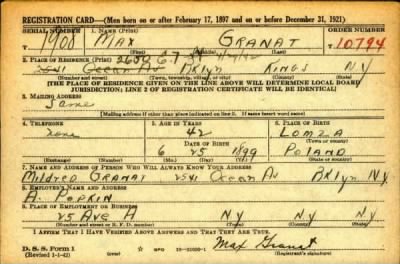 REGISTRATION CARD—(Men born on or after February 17, 1897 and on or before December 31, 1921)
SERIAL NUMBER 1. NAME (Print) ORDER NUMBER
T 1908 MAX GRANAT 10794
(First) (Middle) (Last)
2. PLACE OF RESIDENCE (Print)
2541 Ocean Av BKlyn KINGS N.Y
(Number and street) (Town, township, village, or city) (County) (State)
[THE PLACE OF RESIDENCE GIVEN ON THE LINE ABOVE WILL DETERMINE LOCAL BOARD
JURISDICTION; LINE 2 OF REGISTRATION CERTIFICATE WILL BE IDENTICAL]
3. MAILING ADDRESS
Same
[Mailing address if other than place indicated on line 2. If same insert word same]
4. TELEPHONE 5. AGE IN YEARS 6. PLACE OF BIRTH
none 42 LOMZA
DATE OF BIRTH (Town or county)
6 25 1899 POLAND
(Exchange) (Number) (Mo.) (Day) (Yr.) (State or country)
7. NAME AND ADDRESS OF PERSON WHO WILL ALWAYS KNOW YOUR ADDRESS
Mildred GRANAT 2541 Ocean Av BKlyn N.Y.
8. EMPLOYER'S NAME AND ADDRESS
A. POPKIN
9. PLACE OF EMPLOYMENT OR BUSINESS
25 Ave A N.Y N.Y
(Number and street or R. F. D. number) (Town) (County) (State)
I AFFIRM THAT I HAVE VERIFIED ABOVE ANSWERS AND THAT THEY ARE TRUE.
D. S. S. Form 1
(Revised 1-1-42) (over) GPO Max Granat
(Registrant's signature)